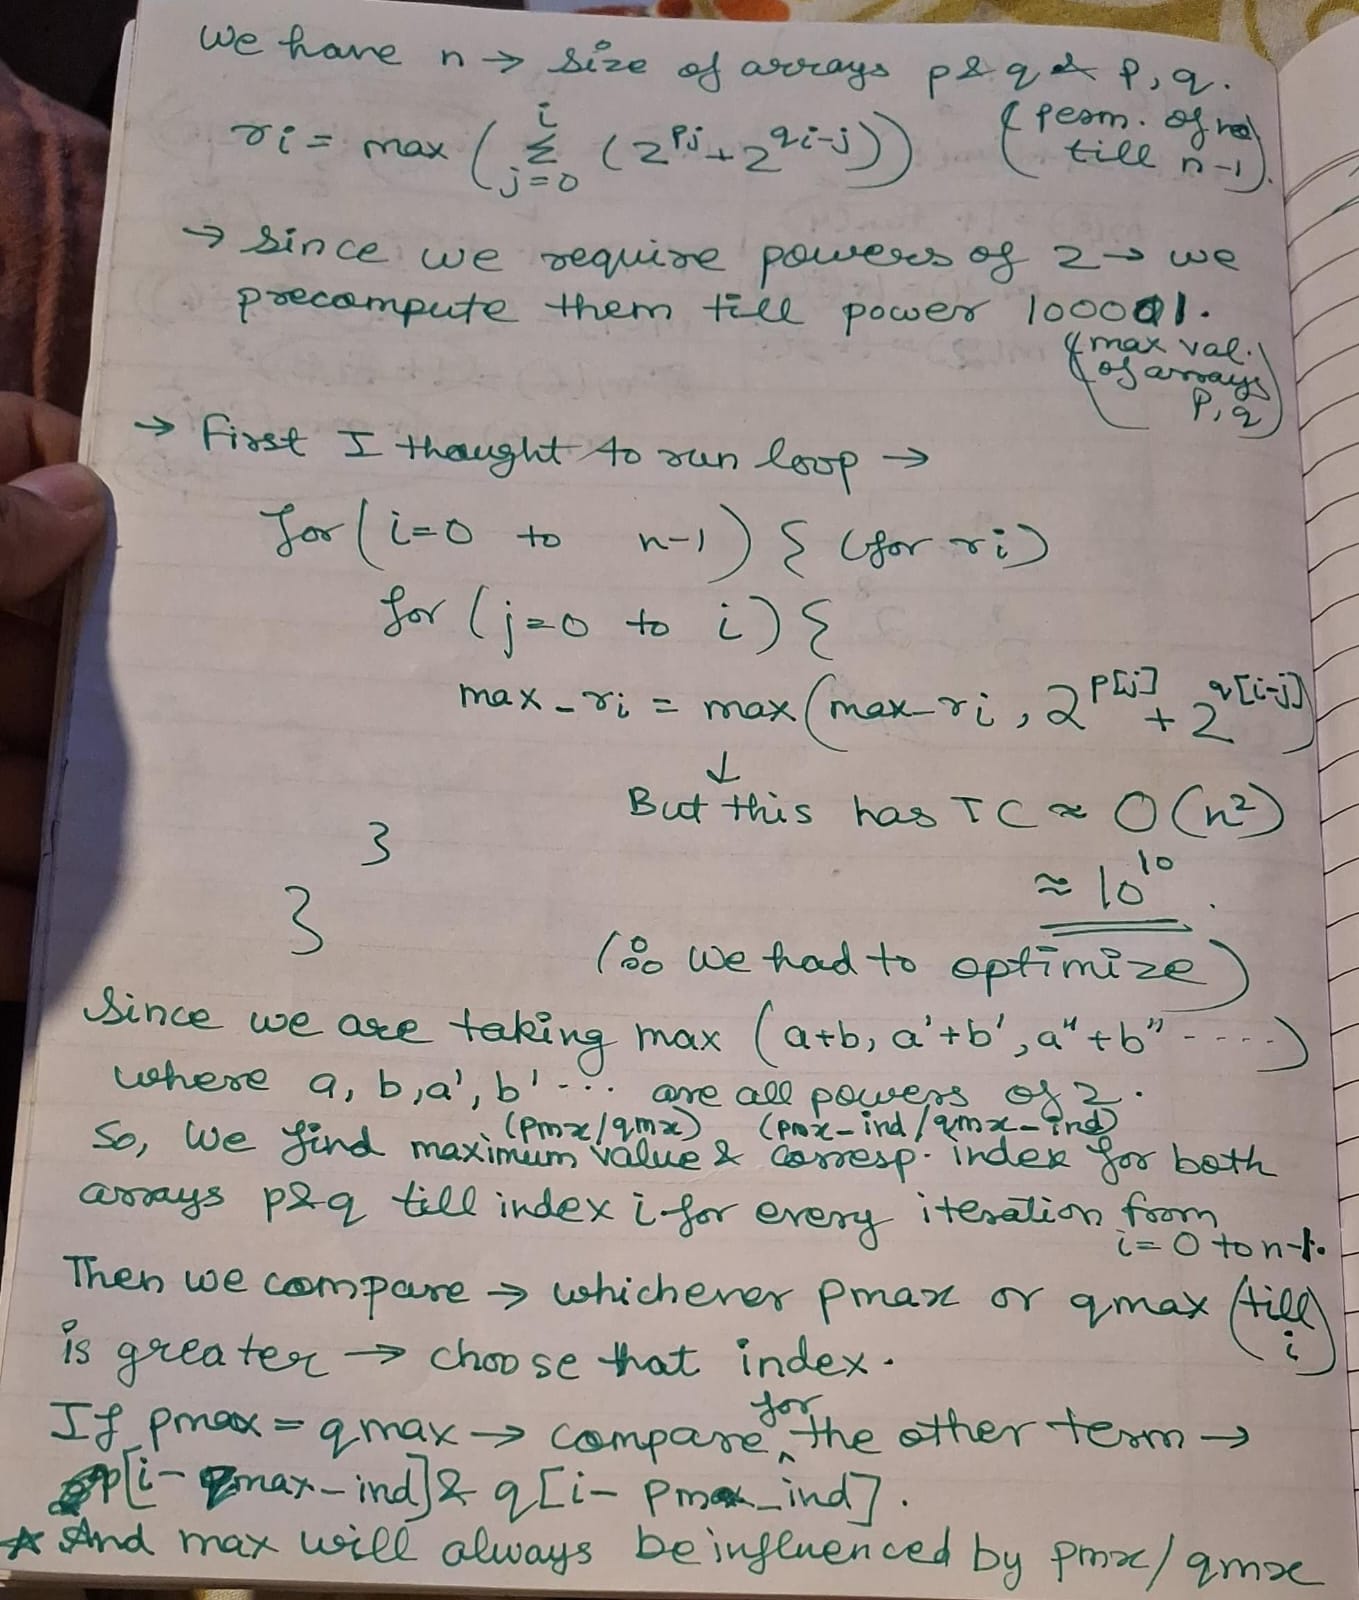 We have n → size of arrays p & q & P, q.
ri = max ( i Σ j=0 (2^pj + 2^qi-j)) (perm. of no till n-1).
→ Since we require powers of 2 → we
precompute them till power 100001.
(max val. of arrays P, q)
→ First I thought to run loop →
for (i=0 to n-1) { (for ri)
for (j=0 to i) {
max_ri = max (max_ri, 2^p[j] + 2^q[i-j])
↓
But this has TC ≈ O(n²)
}
≈ 10^10.
}
(∴ We had to optimize)
Since we are taking max (a+b, a'+b', a"+b" ----)
where a, b, a', b' ---. are all powers of 2.
(pmx/qmx) (pmx-ind/qmx-ind)
So, We find maximum value & corresp. index for both
arrays p&q till index i for every iteration from
i=0 to n-1.
Then we compare → whichever pmax or qmax (till i)
is greater → choose that index.
If pmax = qmax → compare for the other term →
p[i-qmax-ind] & q[i-pmax_ind].
★ And max will always be influenced by pmx/qmx